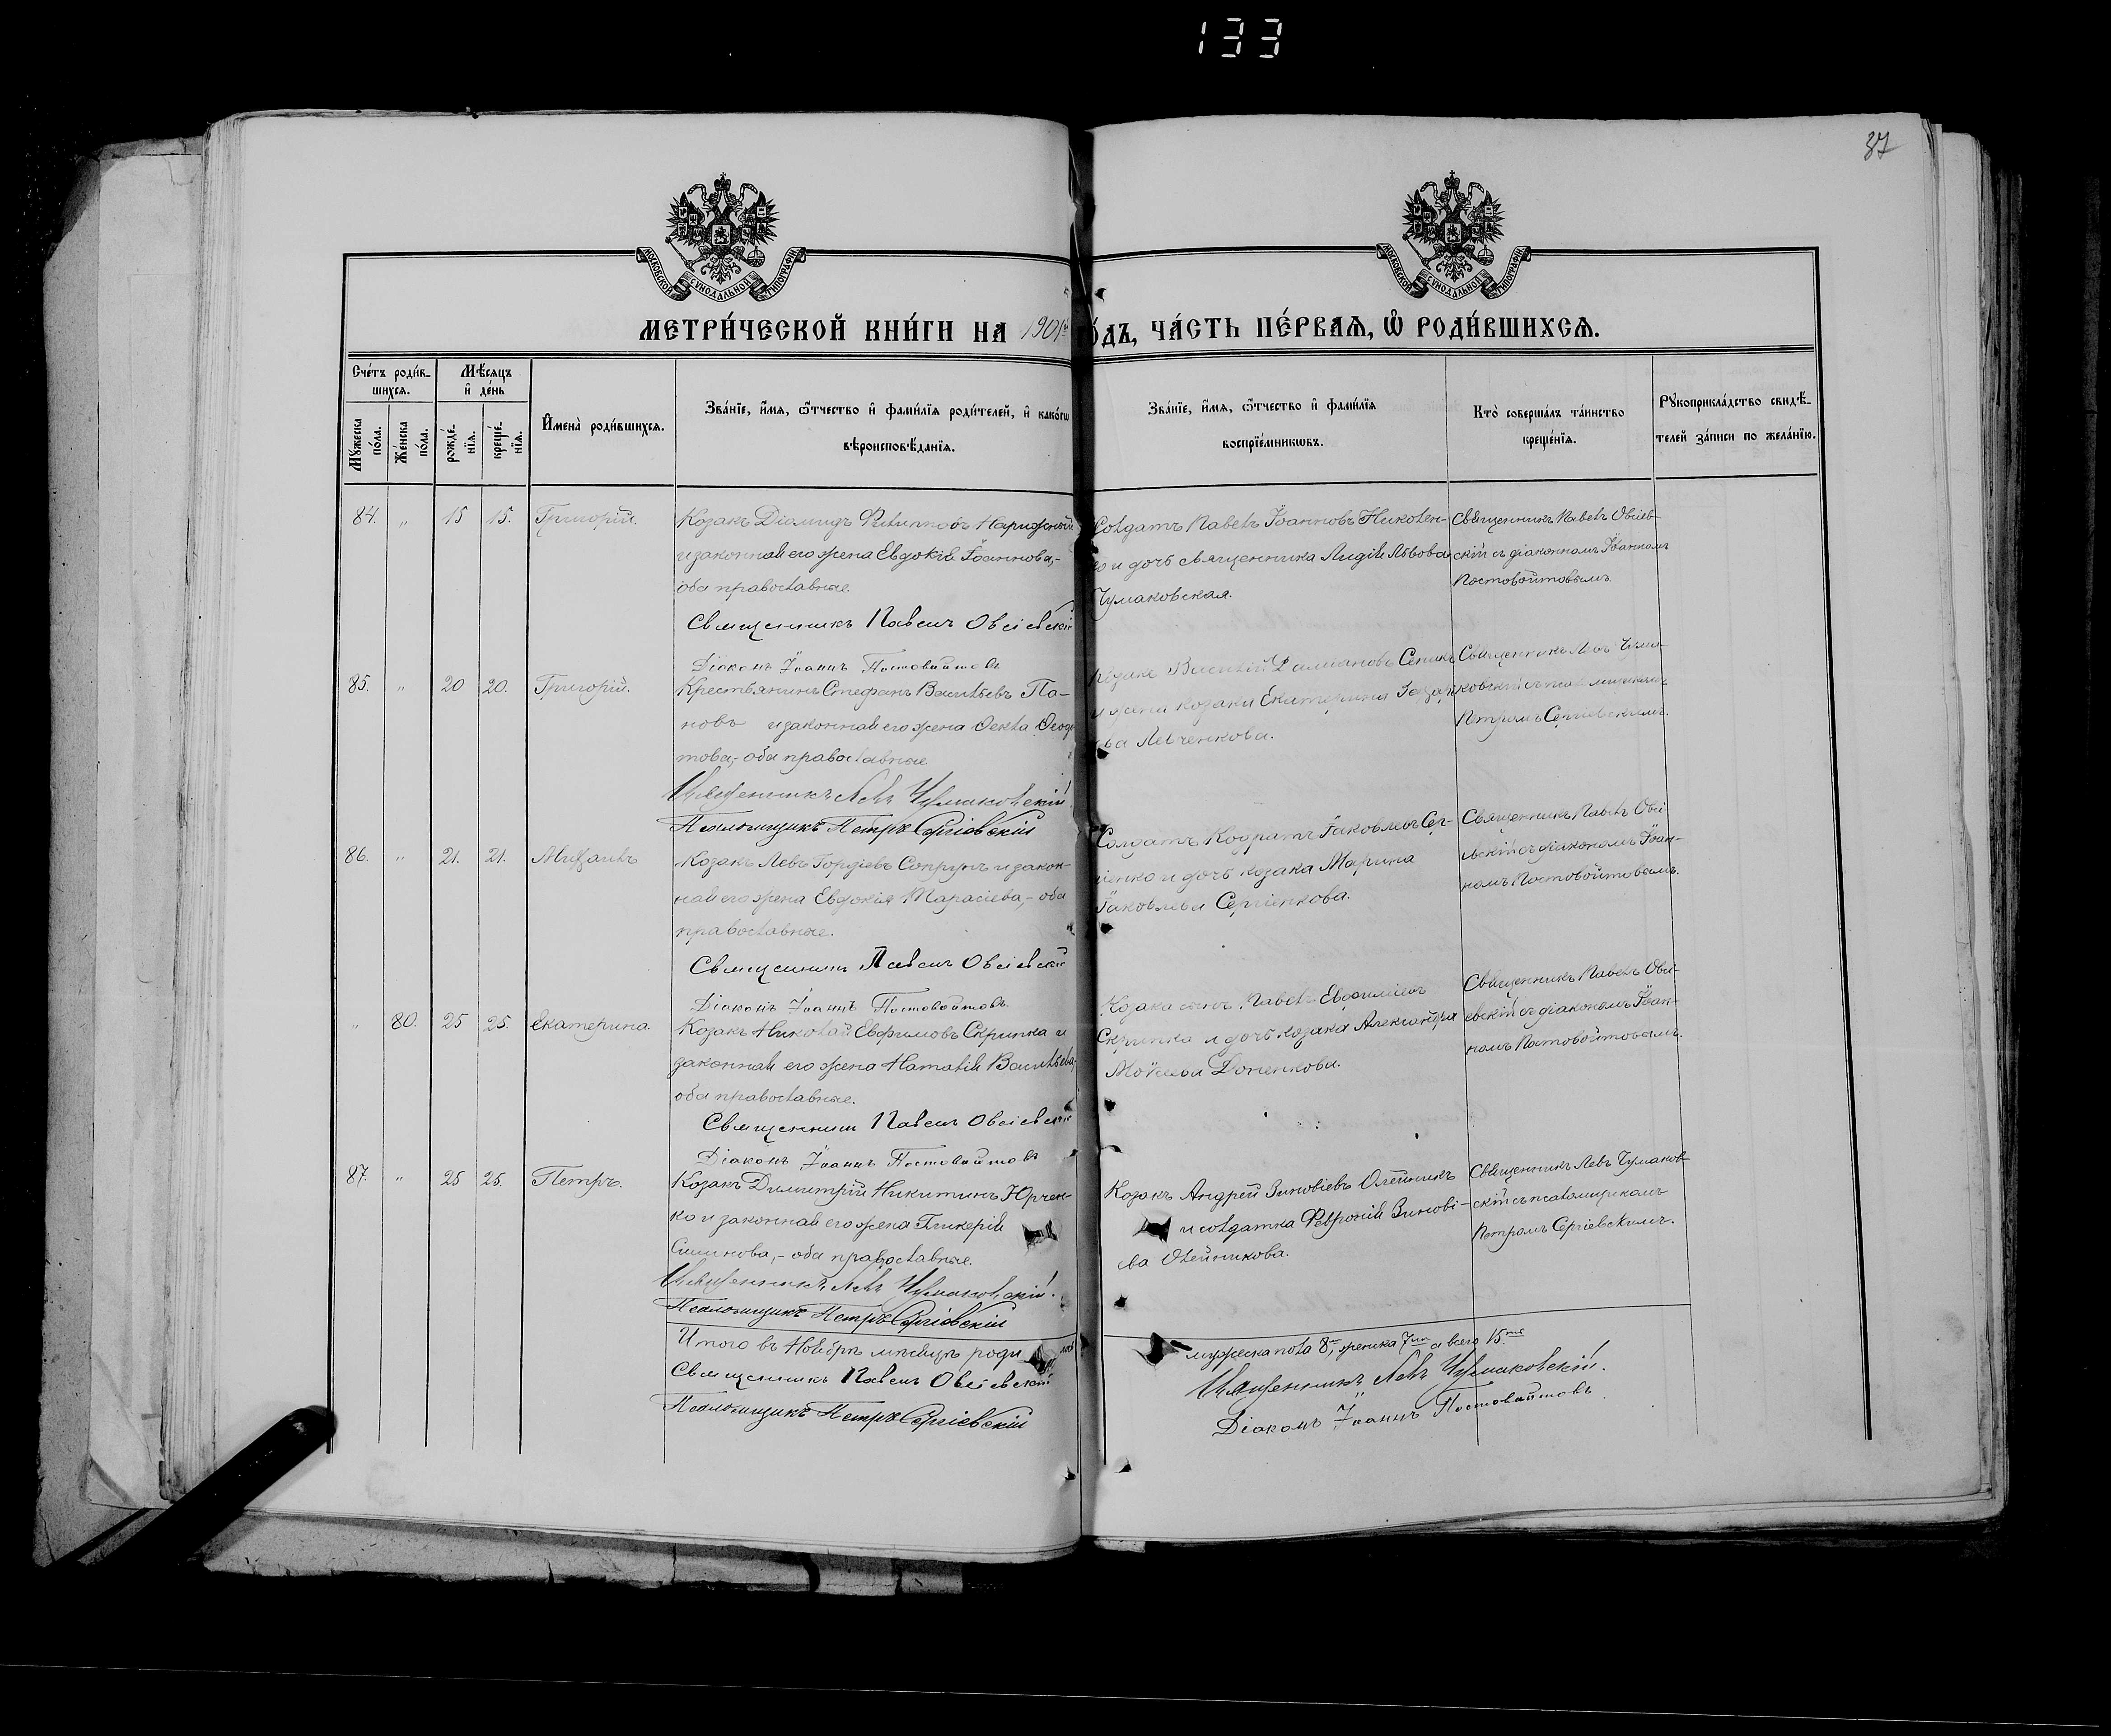 133
37
МОСКОВСКОЙ СѴНОДАЛЬНОЙ ТИПОГРАФІИ
МОСКОВСКОЙ СѴНОДАЛЬНОЙ ТИПОГРАФІИ
МЕТРИ́ЧЕСКОЙ КНИ́ГИ НА 1901й
О́ДЪ, ЧА́СТЬ ПЕ́РВАѦ, Ѽ РОДИ́ВШИХСѦ.
Сче́тъ роди́в-
шихсѧ.
Мѣ́сѧцъ
и҆ де́нь
Мꙋ́жеска
по́ла.
Же́нска
по́ла.
рожде́-
нїѧ.
креще́-
нїѧ.
И҆мена̀ роди́вшихсѧ.
Зва́нїе, и҆́мѧ, ѻ҆́тчество и҆ фами́лїѧ роди́телей, и҆ како́гѡ
вѣроисповѣ́данїѧ.
Зва́нїе, и҆́мѧ, ѻ҆́тчество и҆ фами́лїѧ
воспрїе́мникѡвъ.
Кто̀ соверша́лъ та́инство
креще́нїѧ.
Рꙋкоприкла́дство свидѣ́-
телей за́писи по жела́нїю.
84. " 15 15. Григорій.
Козакъ Діомидъ Филипповъ Нарижный
и законная его жена Евдокія Іоаннова,-
оба православные.
Священникъ Павелъ Овсіевскій
Діаконъ Іоаннъ Постовойтовъ
Солдатъ Павелъ Іоанновъ Николен-
ко и дочь священника Лидія Львова
Чумаковская.
Священникъ Павелъ Овсіев-
скій съ діакономъ Іоанномъ
Постовойтовымъ
85. " 20 20. Григорій.
Крестьянинъ Стефанъ Васильевъ По-
новъ и законная его жена Ѳекла Ѳеодо
това,- оба православные
Священникъ Левъ Чумаковскій
Псаломщикъ Петръ Сергіевскій
Козакъ Василій Даміановъ
и жена козака Екатерина
ва Левченкова.
Священникъ Левъ Чума-
ковскій съ псаломщикомъ
Петромъ Сергіевскимъ.
86. " 21. 21. Михаилъ
Козакъ Левъ Гордіевъ Сопрунъ и закон-
ная его жена Евдокія Тарасіева,- оба
православные.
Священникъ Павелъ Овсіевскій
Діаконъ Іоаннъ Постовойтовъ
Солдатъ Кодратъ Іаковлевъ Сер-
гіенко и дочь козака Марина
Іаковлева Сергіенкова.
Священникъ Павелъ Овсі-
евскій съ діакономъ Іоан-
номъ Постовойтовымъ.
" 80. 25 25. Екатерина.
Козакъ Николай Евфимовъ Скрипка и
законная его жена Наталія Васильева,
оба православные.
Священникъ Павелъ Овсіевскій
Діаконъ Іоаннъ Постовойтовъ
Козака сынъ Павелъ Евфиміевъ
Скрипка и дочь козака Александра
Моѵсеева Доненкова.
Священникъ Павелъ Овсі-
евскій съ діакономъ Іоан-
номъ Постовойтовымъ.
87. " 25 25. Петръ.
Козакъ Димитрій Никитинъ Юрчен-
ко и законная его жена Гликерія
Симонова,- оба православные.
Священникъ Левъ Чумаковскій.
Псаломщикъ Петръ Сергіевскій
Козакъ Андрей Зиновіевъ Олейникъ
и солдатка Февронія Зинові-
ева Олейникова.
Священникъ Левъ Чумаков-
скій съ псаломщикомъ
Петромъ Сергіевскимъ.
Итого въ Ноябрѣ мѣсяцѣ роди
мужеска пола 8, женска 7 а всего 15
Священникъ Павелъ Овсіевскій
Священникъ Левъ Чумаковскій.
Псаломщикъ Петръ Сергіевскій
Діаконъ Іоаннъ Постовойтовъ